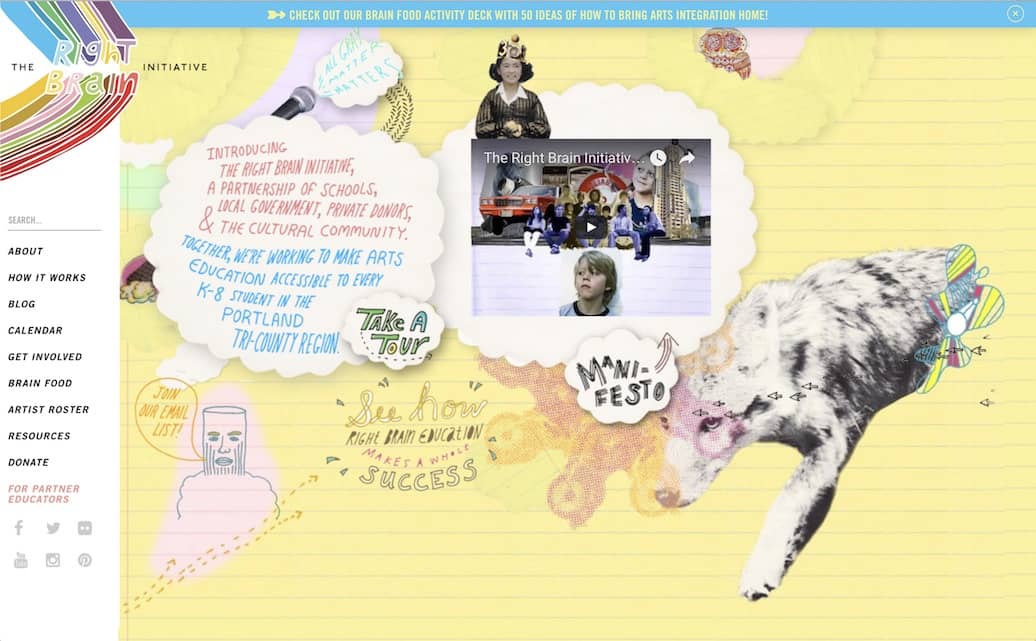 CHECK OUT OUR BRAIN FOOD ACTIVITY DECK WITH 50 IDEAS OF HOW TO BRING ARTS INTEGRATION HOME!
THE RIGHT BRAIN INITIATIVE
SEARCH...
ABOUT
HOW IT WORKS
BLOG
CALENDAR
GET INVOLVED
BRAIN FOOD
ARTIST ROSTER
RESOURCES
DONATE
FOR PARTNER
EDUCATORS
ALL GRAY
MATTER
MATTERS
INTRODUCING
THE RIGHT BRAIN INITIATIVE,
A PARTNERSHIP OF SCHOOLS,
LOCAL GOVERNMENT, PRIVATE DONORS,
& THE CULTURAL COMMUNITY.
TOGETHER, WE'RE WORKING TO MAKE ARTS
EDUCATION ACCESSIBLE TO EVERY
K-8 STUDENT IN THE
PORTLAND
TRI-COUNTY REGION.
TAKE A
TOUR
The Right Brain Initiativ...
MANI-
FESTO
JOIN
OUR EMAIL
LIST!
See how
RIGHT BRAIN EDUCATION
MAKES A WHOLE
SUCCESS